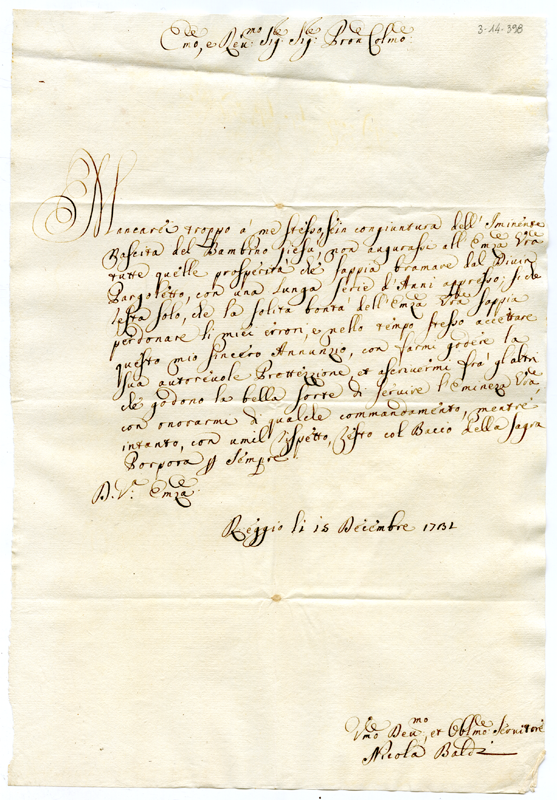 3-14-398
Emo, e Reu.mo Sig.re Sig.re Pron Colmo:
Mancarei troppo à me stesso, sin congiuntura dell' Iminente
Nascita del Bambino Giesù, non augurase all' Emza Vra
tutte quelle prosperità, che sappia bramare dal Divin
Pargoletto, con una lunga serie d'Anni appresso; si che
resta solo, che la solita bontà dell' Emza Vra sappia
perdonare li miei errori, e nello tempo stesso accettare
questo mio sincero Annunzio, con farmi godere la
sua autoreuole Prottezzione, et ascriuermi frà gl'altri
che godono la bella sorte di seruire l'Eminenza Vra,
con onorarme di qualche commandamento, mentre
intanto, con umil rispetto, resto col Bacio della Sagra
Porpora p sempre
D. V.ra Emza:
Reggio li 15 Decembre 1731
Vmo Deu.mo, et Oblmo: Seruitore
Nicola Baldi